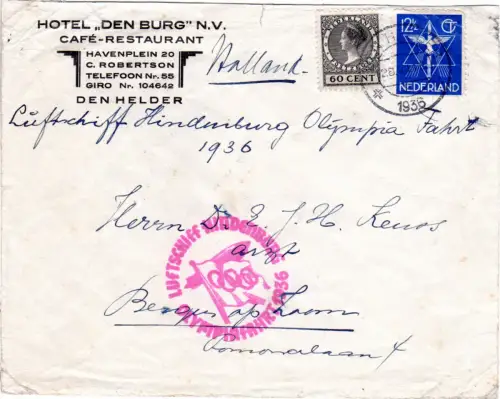 HOTEL „DEN BURG" N.V.
CAFÉ-RESTAURANT
HAVENPLEIN 20
C. ROBERTSON
TELEFOON Nr. 55
GIRO Nr. 104642
DEN HELDER
Holland.
60 CENT
12½ CT
NEDERLAND
1936
Luftschiff Hindenburg Olympia Fahrt
1936
Herrn Dr. E. J. H.
arzt
Bergen op Zoom
4
LUFTSCHIFF HINDENBURG
OLYMPIAFAHRT 1936